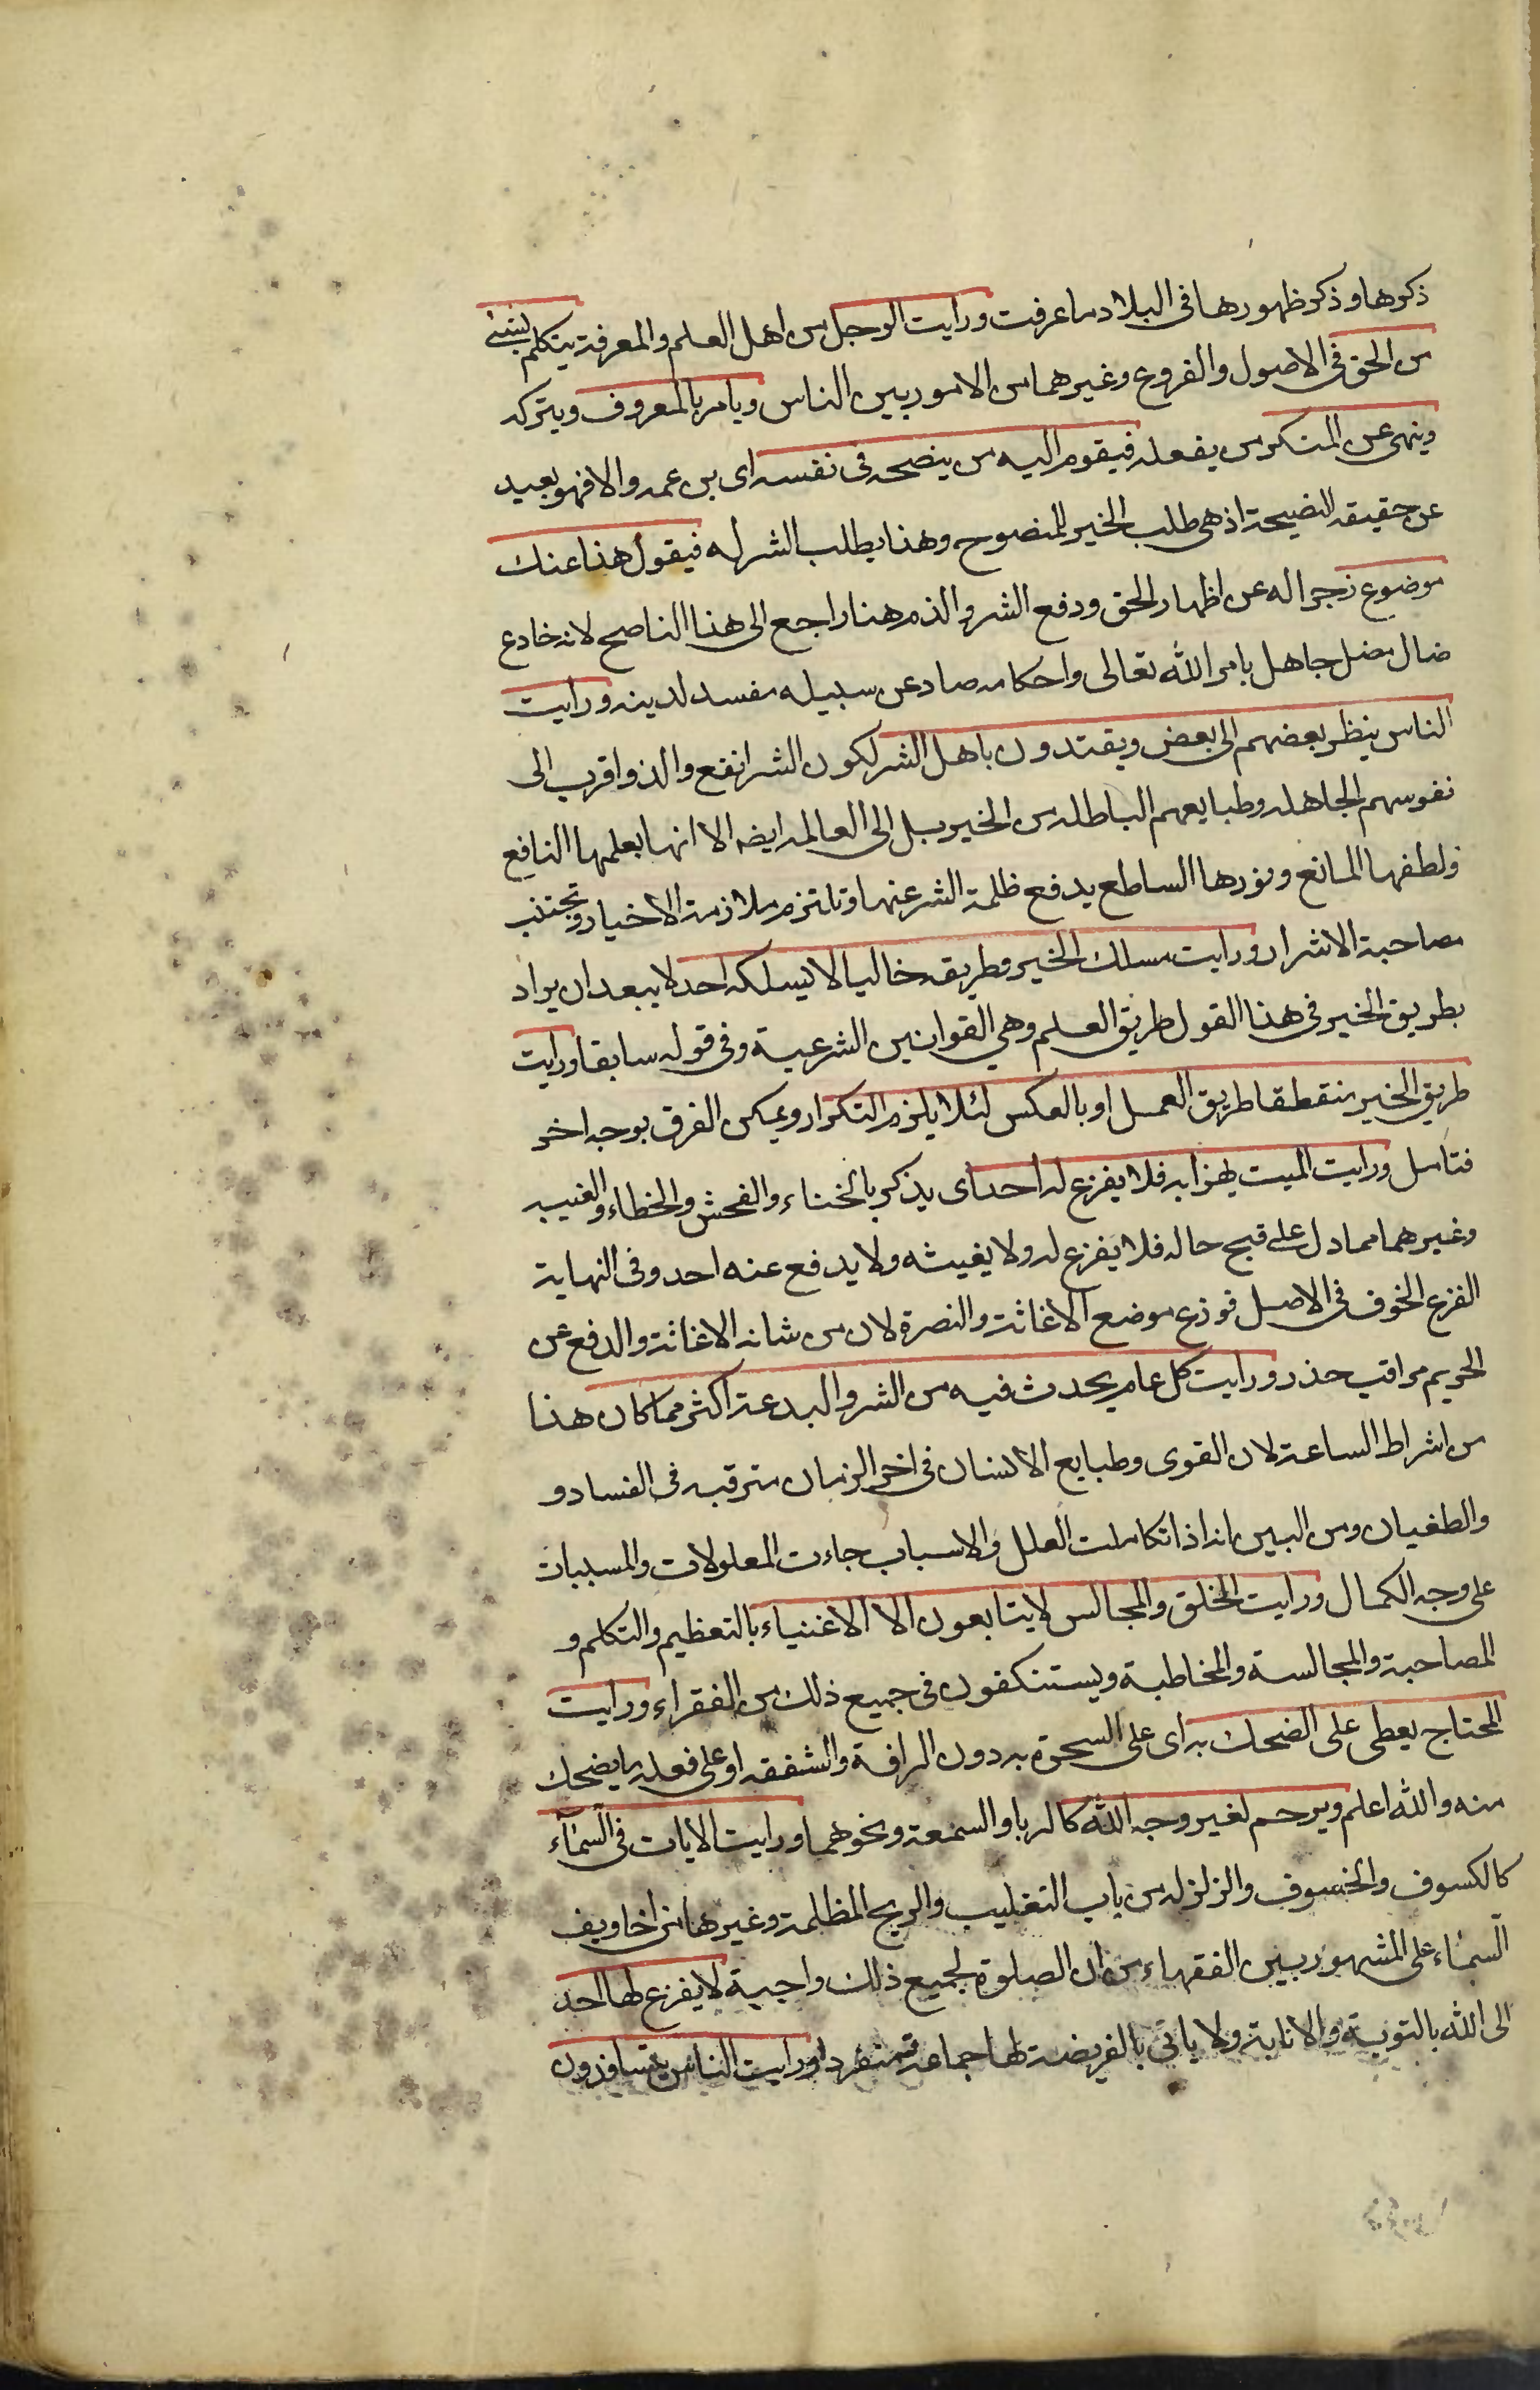 ذكرها وذكر ظهورها في البلاد ما عرفت ورايت الرجل من اهل العلم والمعرفة يتكلم بشيئ
من الحق في الاصول والفروع وغيرهما من الامور بين الناس ويامر بالمعروف ويتركه
وينهى عن المنكر من يفعله فيقوم اليه من ينصحه في نفسه اى بن عمه والا فهو بعيد
عن حقيقه النصيحة اذ هي طلب الخير للمنصوح وهذا يطلب الشر له فيقول هذا عنك
موضوع زجرا له عن اظهار الحق ودفع الشر والذم هنا راجع الى هذا الناصح لانه خادع
ضال مضل جاهل بامر الله تعالى واحكامه صاد عن سبيله مفسد لدينه ورايت
الناس ينظر بعضهم الى بعض ويقتدون باهل الشر لكون الشر انفع والذ واقرب الى
نفوسهم الجاهله وطبايعهم الباطله من الخير بل الى العالمه ايضه الا انها بعلمها النافع
ولطفها المانع ونورها الساطع يدفع ظلمة الشر عنها وتلتزم ملازمة الاخيار وتجتنب
مصاحبة الاشرار ورايت مسلك الخير وطريقه خاليا لا يسلكه احد لا يبعد ان يراد
بطريق الخير في هذا القول طريق العلم وهي القوانين الشرعية وفي قوله سابقا ورايت
طريق الخير منقطعا طريق العمل او بالعكس لئلا يلزم التكرار ويمكن الفرق بوجه اخر
فتأمل ورايت الميت يهزا به فلا يفزع له احد اى يذكر بالخناء والفحش والخطاء والغيبه
وغيرهما مما دل على قبح حاله فلا يفزع له ولا يغيثه ولا يدفع عنه احد وفى النهاية
الفزع الخوف في الاصل فوزع موضع الاغاثة والنصرة لان من شانه الاغاثة والدفع عن
الحريم مراقب حذر ورايت كل عام يحدث فيه من الشر والبدعة اكثر مما كان هذا
من اشراط الساعة لان القوى وطبايع الانسان في اخر الزمان مترقبه في الفساد و
والطغيان ومن البين انه اذا تكاملت العلل والاسباب جاءت المعلولات والمسببات
على وجه الكمال ورايت الخلق والمجالس لا يتابعون الا الاغنياء بالتعظيم والتكلم و
المصاحبة والمجالسة والمخاطبة ويستنكفون في جميع ذلك من الفقراء ورايت
المحتاج يعطى على الضحك به اى على السحرة به دون الرافة والشفقه او على فعله ما يضحك
منه والله اعلم ويرحم لغير وجه الله كالربا والسمعة ونحوهما ورايت الايات في السمآء
كالكسوف والخسوف والزلزله من باب التغليب والريح المظلمة وغيرها من اخاويف
السماء على المشهور بين الفقهاء من ان الصلوة لجميع ذلك واجبة لا يفزع لها احد
الى الله بالتوبة والانابة ولا ياتى بالفريضة لها جماعة منفردا ورايت الناس يتسافدون